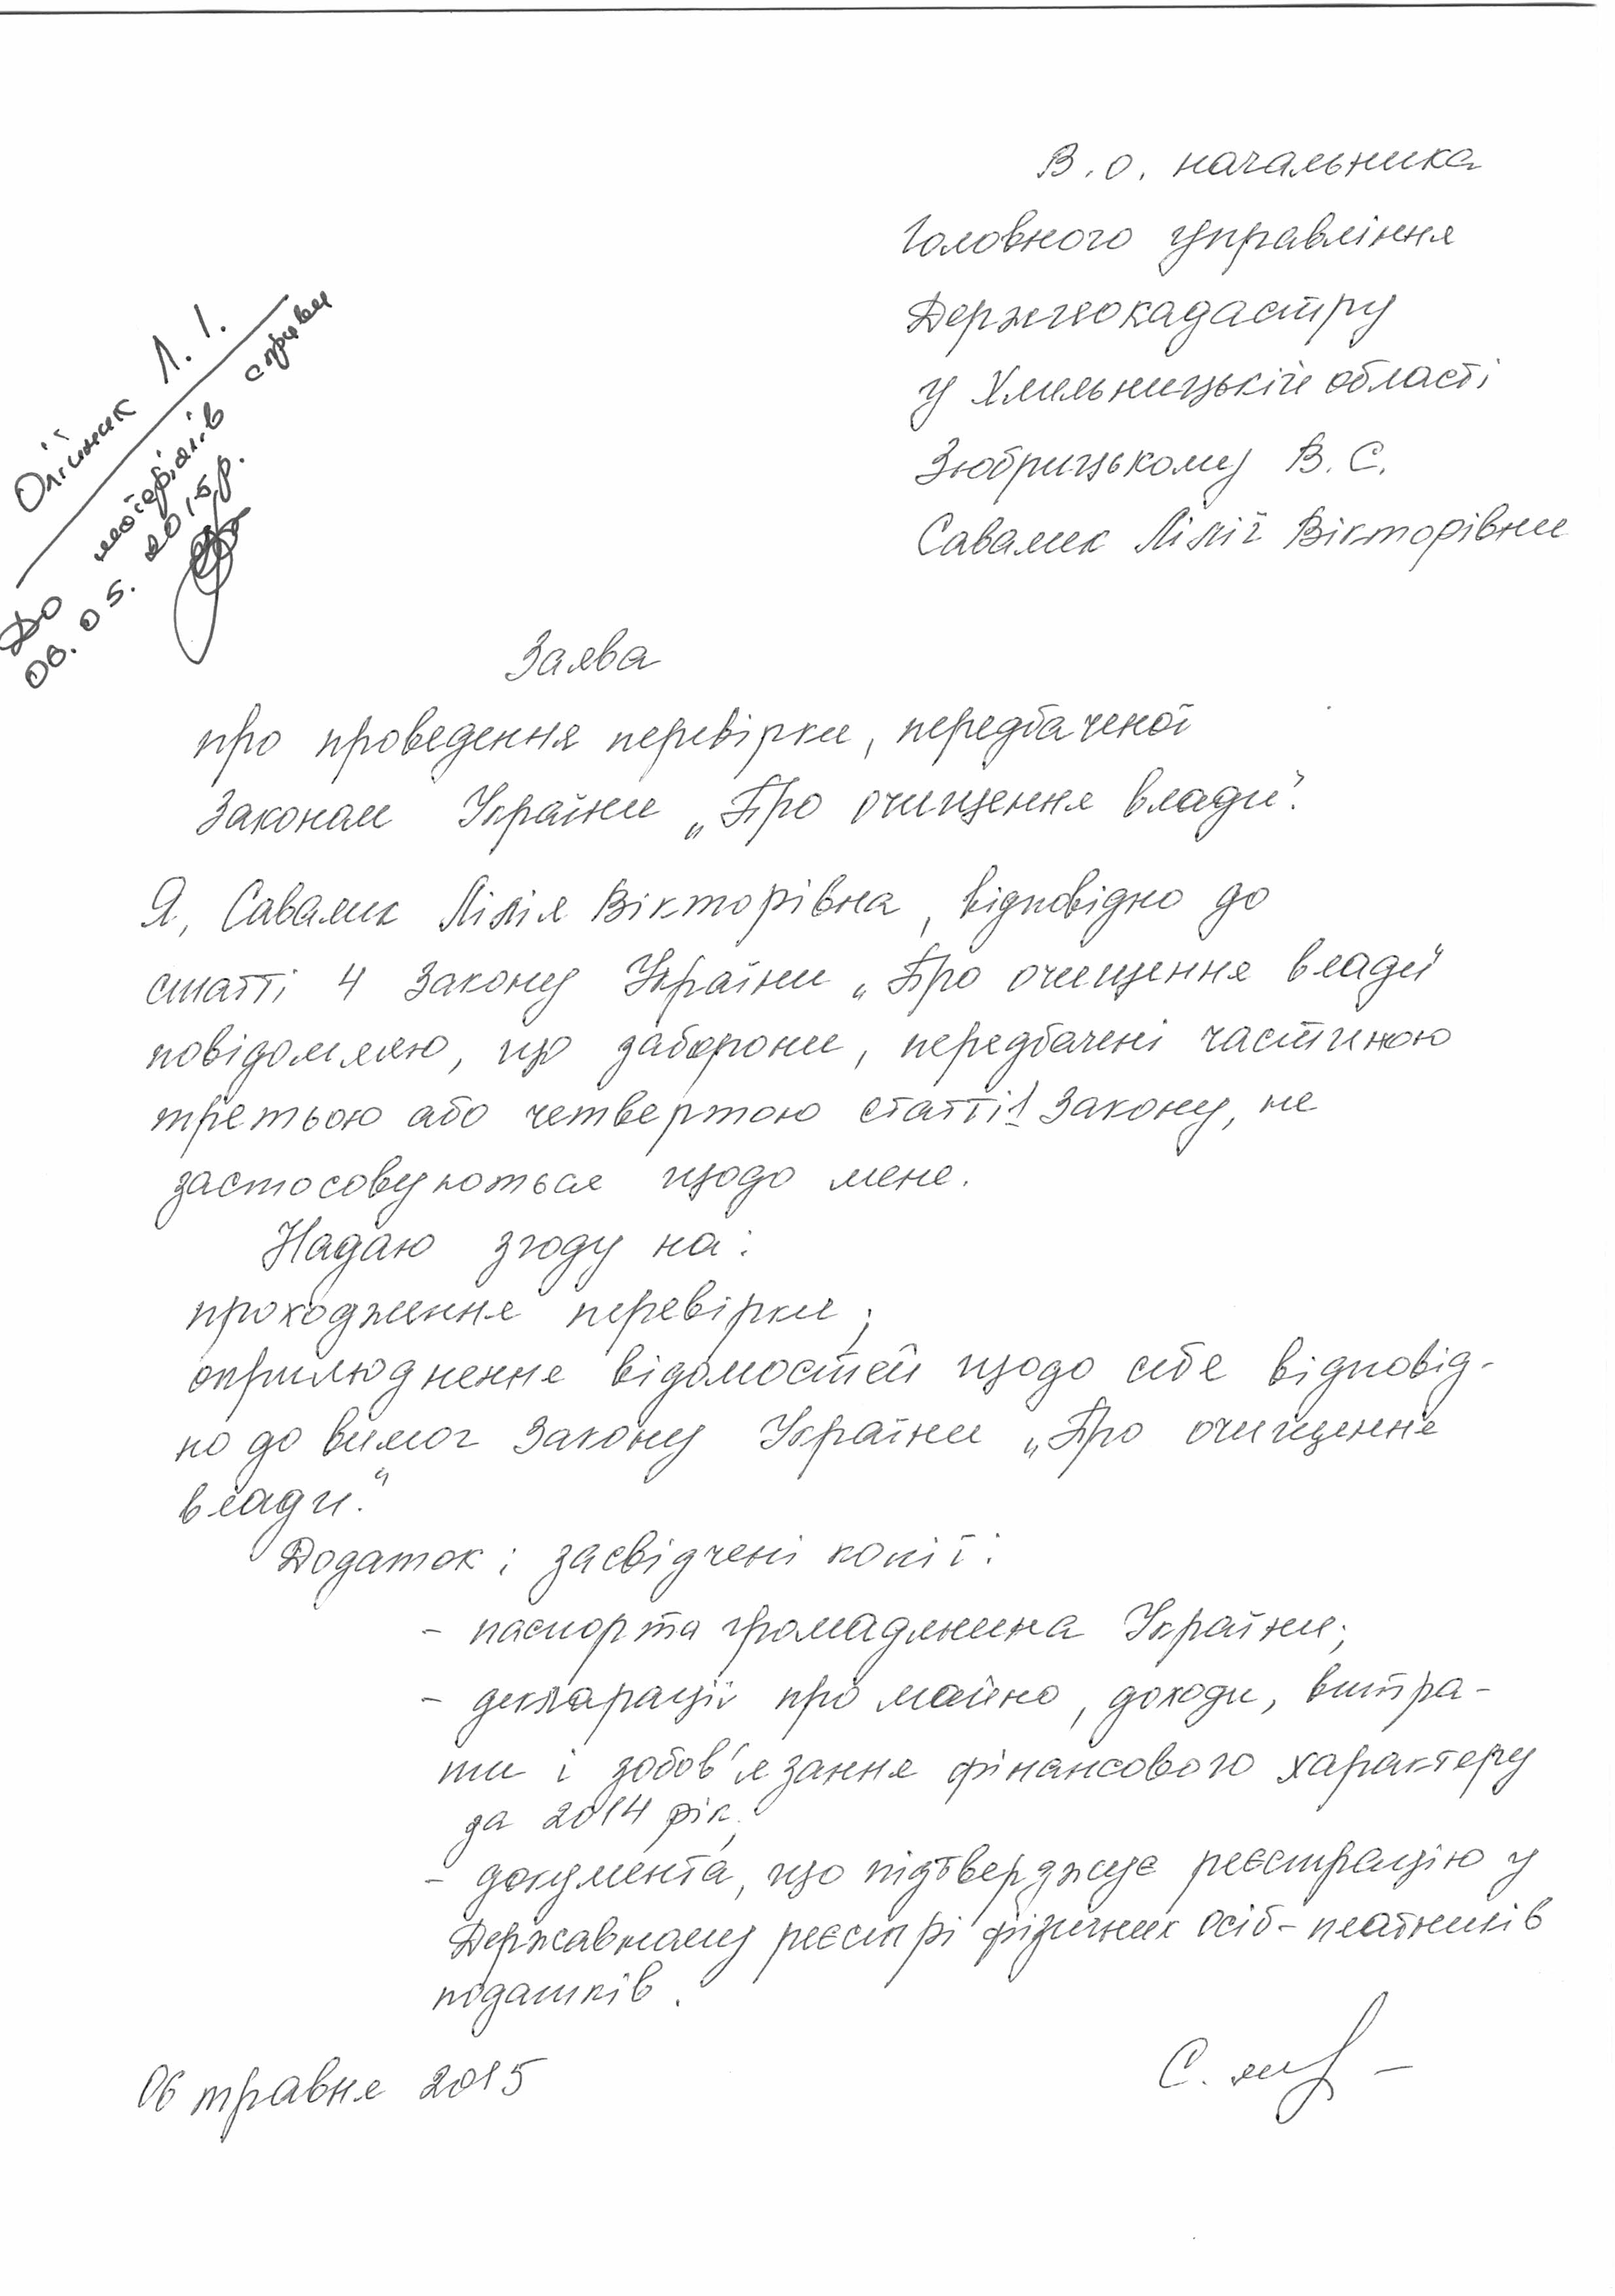 В.о. начальника
Головного управління
Держгеокадастру
у Хмельницькій області
Зюбрицькому В.С.
Савалик Лілії Вікторівни
Олійник Л.І.
До матеріалів справи
06.05.2015р.
Заява
про проведення перевірки, передбаченої
Законом України „Про очищення влади".
Я, Савалик Лілія Вікторівна, відповідно до
статті 4 Закону України „Про очищення влади"
повідомляю, що заборони, передбачені частиною
третьою або четвертою статті 1 Закону, не
застосовуються щодо мене.
Надаю згоду на:
проходження перевірки;
оприлюднення відомостей щодо себе відповід-
но до вимог Закону України „Про очищення
влади."
Додаток: засвідчені копії:
- паспорта громадянина України;
- декларації про майно, доходи, витра-
ти і зобов'язання фінансового характеру
за 2014 рік;
- документа, що підтверджує реєстрацію у
Державному реєстрі фізичних осіб-платників
податків.
06 травня 2015